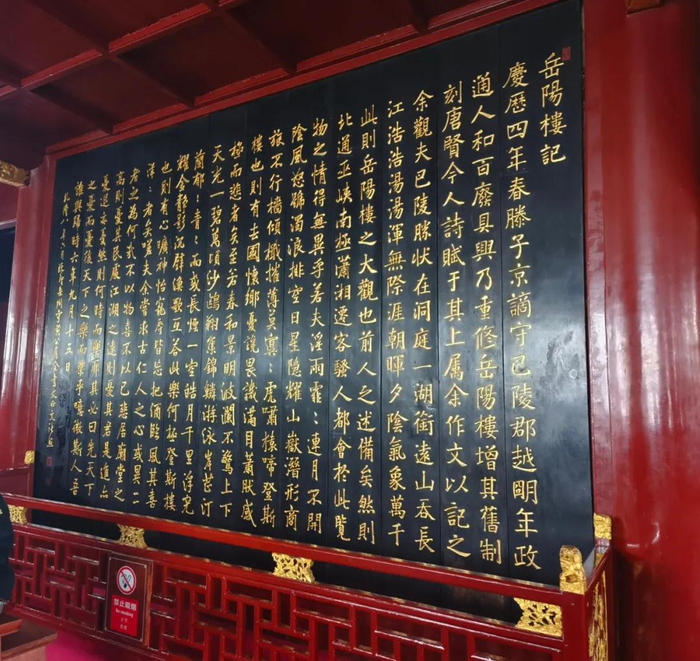 岳陽樓記
慶歷四年春滕子京謫守巴陵郡越明年政
通人和百廢具興乃重修岳陽樓增其舊制
刻唐賢今人詩賦于其上属余作文以記之
余觀夫巴陵勝状在洞庭一湖銜遠山吞長
江浩浩湯湯渾無際涯朝暉夕陰氣象萬千
此則岳陽樓之大觀也前人之述備矣然則
北通巫峡南極瀟湘遷客騷人都會於此覽
物之情得無異乎若夫淫雨霏:連月不開
陰風怒號濁浪排空日星隱耀山嶽潛形商
旅不行檣傾檝摧薄莫冥:虎嘯猿啼登斯
樓也則有去國懷鄉憂讒畏譏滿目蕭然感
極而悲者矣至若春和景明波瀾不驚上下
天光一碧萬頃沙鷗翔集錦鱗游泳岸芷汀
蘭郁:青:而或長煙一空皓月千里浮光
耀金静影沉璧漁歌互答此樂何極登斯樓
也則有心曠神怡寵辱皆忘把酒臨風其喜
洋:者矣嗟夫余嘗求古仁人之心或異二
者之為何哉不以物喜不以己悲居廟堂之
高則憂其民處江湖之遠則憂其君是進亦
憂退亦憂然則何時而樂耶其必曰先天下
之憂而憂後天下之樂而樂乎噫微斯人吾
誰與歸時六年九月十五日
禁止吸烟
No smoking